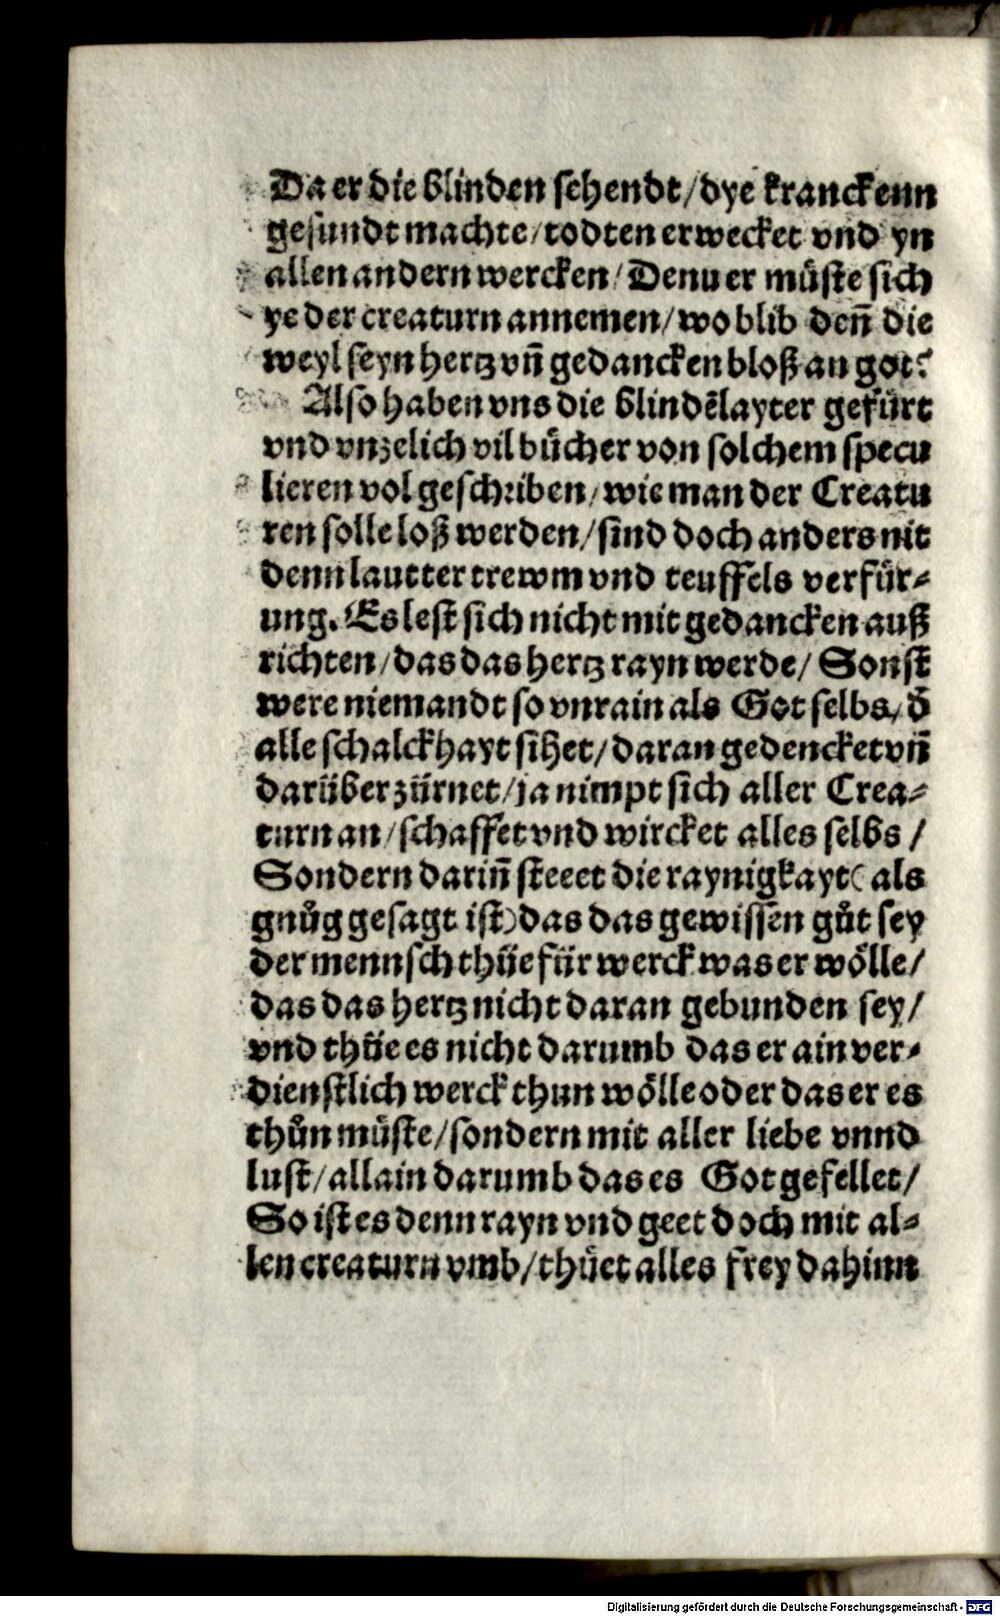 Da er die blinden sehendt/dye kranckenn
gesundt machte/todten erwecket vnd yn
allen andern wercken/Denn er müste sich
ye der creaturn annemen/wo blib deñ die
weyl seyn hertz vñ gedancken bloß an got?
Also haben vns die blindẽlayter gefürt
vnd vnzelich vil bücher von solchem specu
lieren vol geschriben/wie man der Creatu
ren solle loß werden/sind doch anders nit
denn lautter trewm vnd teuffels verfür⸗
ung. Es lest sich nicht mit gedancken auß
richten/das das hertz rayn werde/Sonst
were niemandt so vnrain als Got selbs/d̄
alle schalckhayt sihet/daran gedencket vñ
darüber zürnet/ja nimpt sich aller Crea⸗
turn an/schaffet vnd wircket alles selbs/
Sondern dariñ steeet die raynigkayt(als
gnůg gesagt ist)das das gewissen gůt sey
der mennsch thüe für werck was er wölle/
das das hertz nicht daran gebunden sey/
vnd thüe es nicht darumb das er ain ver⸗
dienstlich werck thun wölle oder das er es
thůn müste/sondern mit aller liebe vnnd
lust/allain darumb das es Got gefellet/
So ist es denn rayn vnd geet doch mit al⸗
len creaturn vmb/thüet alles frey dahinn
Digitalisierung gefördert durch die Deutsche Forschungsgemeinschaft - DFG